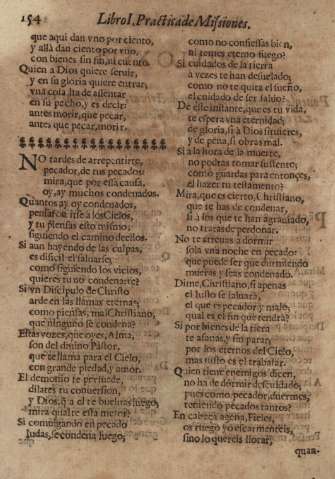 154 Libro I. Practica de Missiones.
que aqui dan vno por ciento,
y allà dan ciento por vno,
con bienes sin fin, ni cuento.
Quien a Dios quiere seruir,
y en su gloria quiere entrar,
vna cosa ha de assentar
en su pecho, y es dezir:
antes morir, que pecar,
antes que pecar, morir.
NO tardes de arrepentirte,
pecador, de tus pecados
mira, que por essa causa,
oy, ay muchos condenados.
Quantos ay, oy condenados,
pensaron irse a los Cielos,
y tu piensas esto mismo,
siguiendo el camino de ellos.
Si aun hayendo de las culpas,
es dificil el saluarse,
como siguiendo los vicios,
quieres tu no condenarte?
Si vn Discipulo de Christo
arde en las llamas eternas,
como piensas, mal Christiano,
que ninguno se condena?
Estas vozes, que oyes, Alma,
son del diuino Pastor,
que te llama para el Cielo,
con grande piedad, y amor.
El demonio te persuade,
dilates tu conuersion,
y Dios, q̃ a el te bueluas luego,
mira qual te està mejor?
Si comulgando en pecado
Iudas, se condena luego,
como no confiessas bien,
ni temes eterno fuego?
Si cuidados de la tierra
à vezes te han desuelado,
como no te quita el sueño,
el cuidado de ser saluo?
De este instante, que es tu vida,
te espera vna eternidad,
de gloria, si à Dios siruieres,
y de pena, si obras mal.
Si a la hora de la muerte,
no podras tomar sustento,
como guardas para entonçes,
el hazer tu testamento?
Mira, que es cierto, Christiano,
que te has de condenar,
si à los que te han agrauiado,
no tratas de perdonar.
No te atreuas a dormir
sola vna noche en pecado,
que puede ser que durmiendo
mueras, y seas condenado.
Dime, Christiano, si apenas
el Iusto se saluarà,
el que es pecador, y malo,
qual es el fin que tendrà?
Si por bienes de la tierra
te afanas, y sin parar,
por los eternos del Cielo,
mas justo es el trabajar.
Quien tiene enemigos dicen,
no ha de dormir descuidado,
pues como pecador, duermes,
teniendo pecados tantos?
En cabeça agena, Fieles,
os ruego yo escarmenteis,
sino lo quereis llorar,
quan-